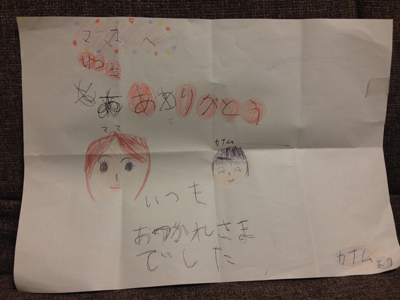 ママへ
ありがとう
ママ
カナム
いつも
おつかれさま
でした
カナムより